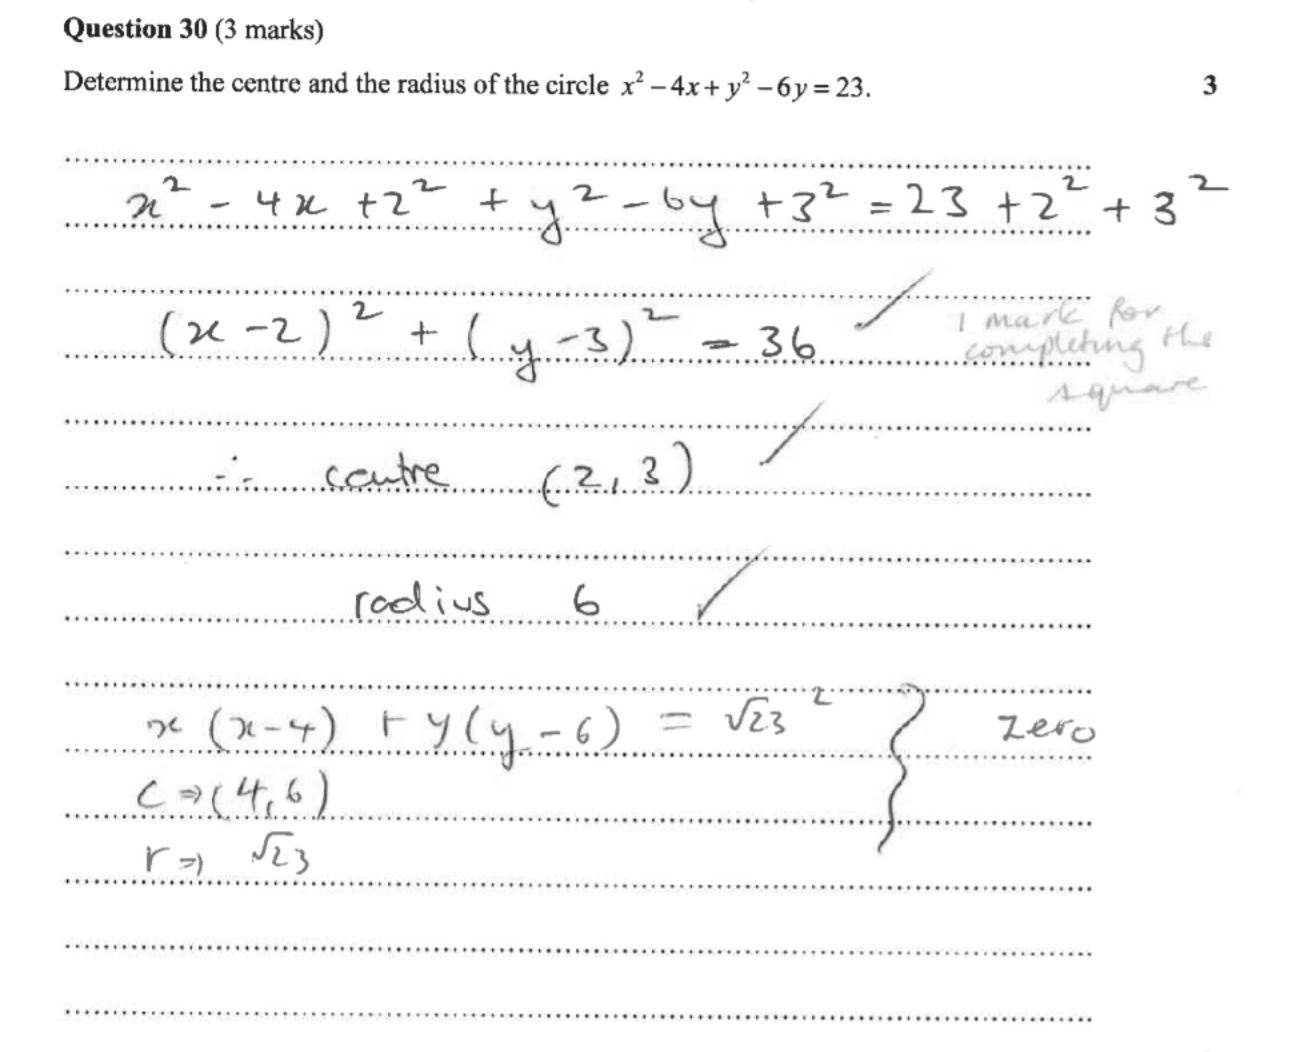 Question 30 (3 marks)
Determine the centre and the radius of the circle x² – 4x + y² – 6y = 23. 3
x² - 4x + 2² + y² - 6y + 3² = 23 + 2² + 3²
(x - 2)² + (y - 3)² = 36 ✓ 1 mark for
completing the
square
∴ centre (2, 3) ✓
radius 6 ✓
x (x - 4) + y (y - 6) = √23² } zero
C ⇒ (4, 6)
r ⇒ √23